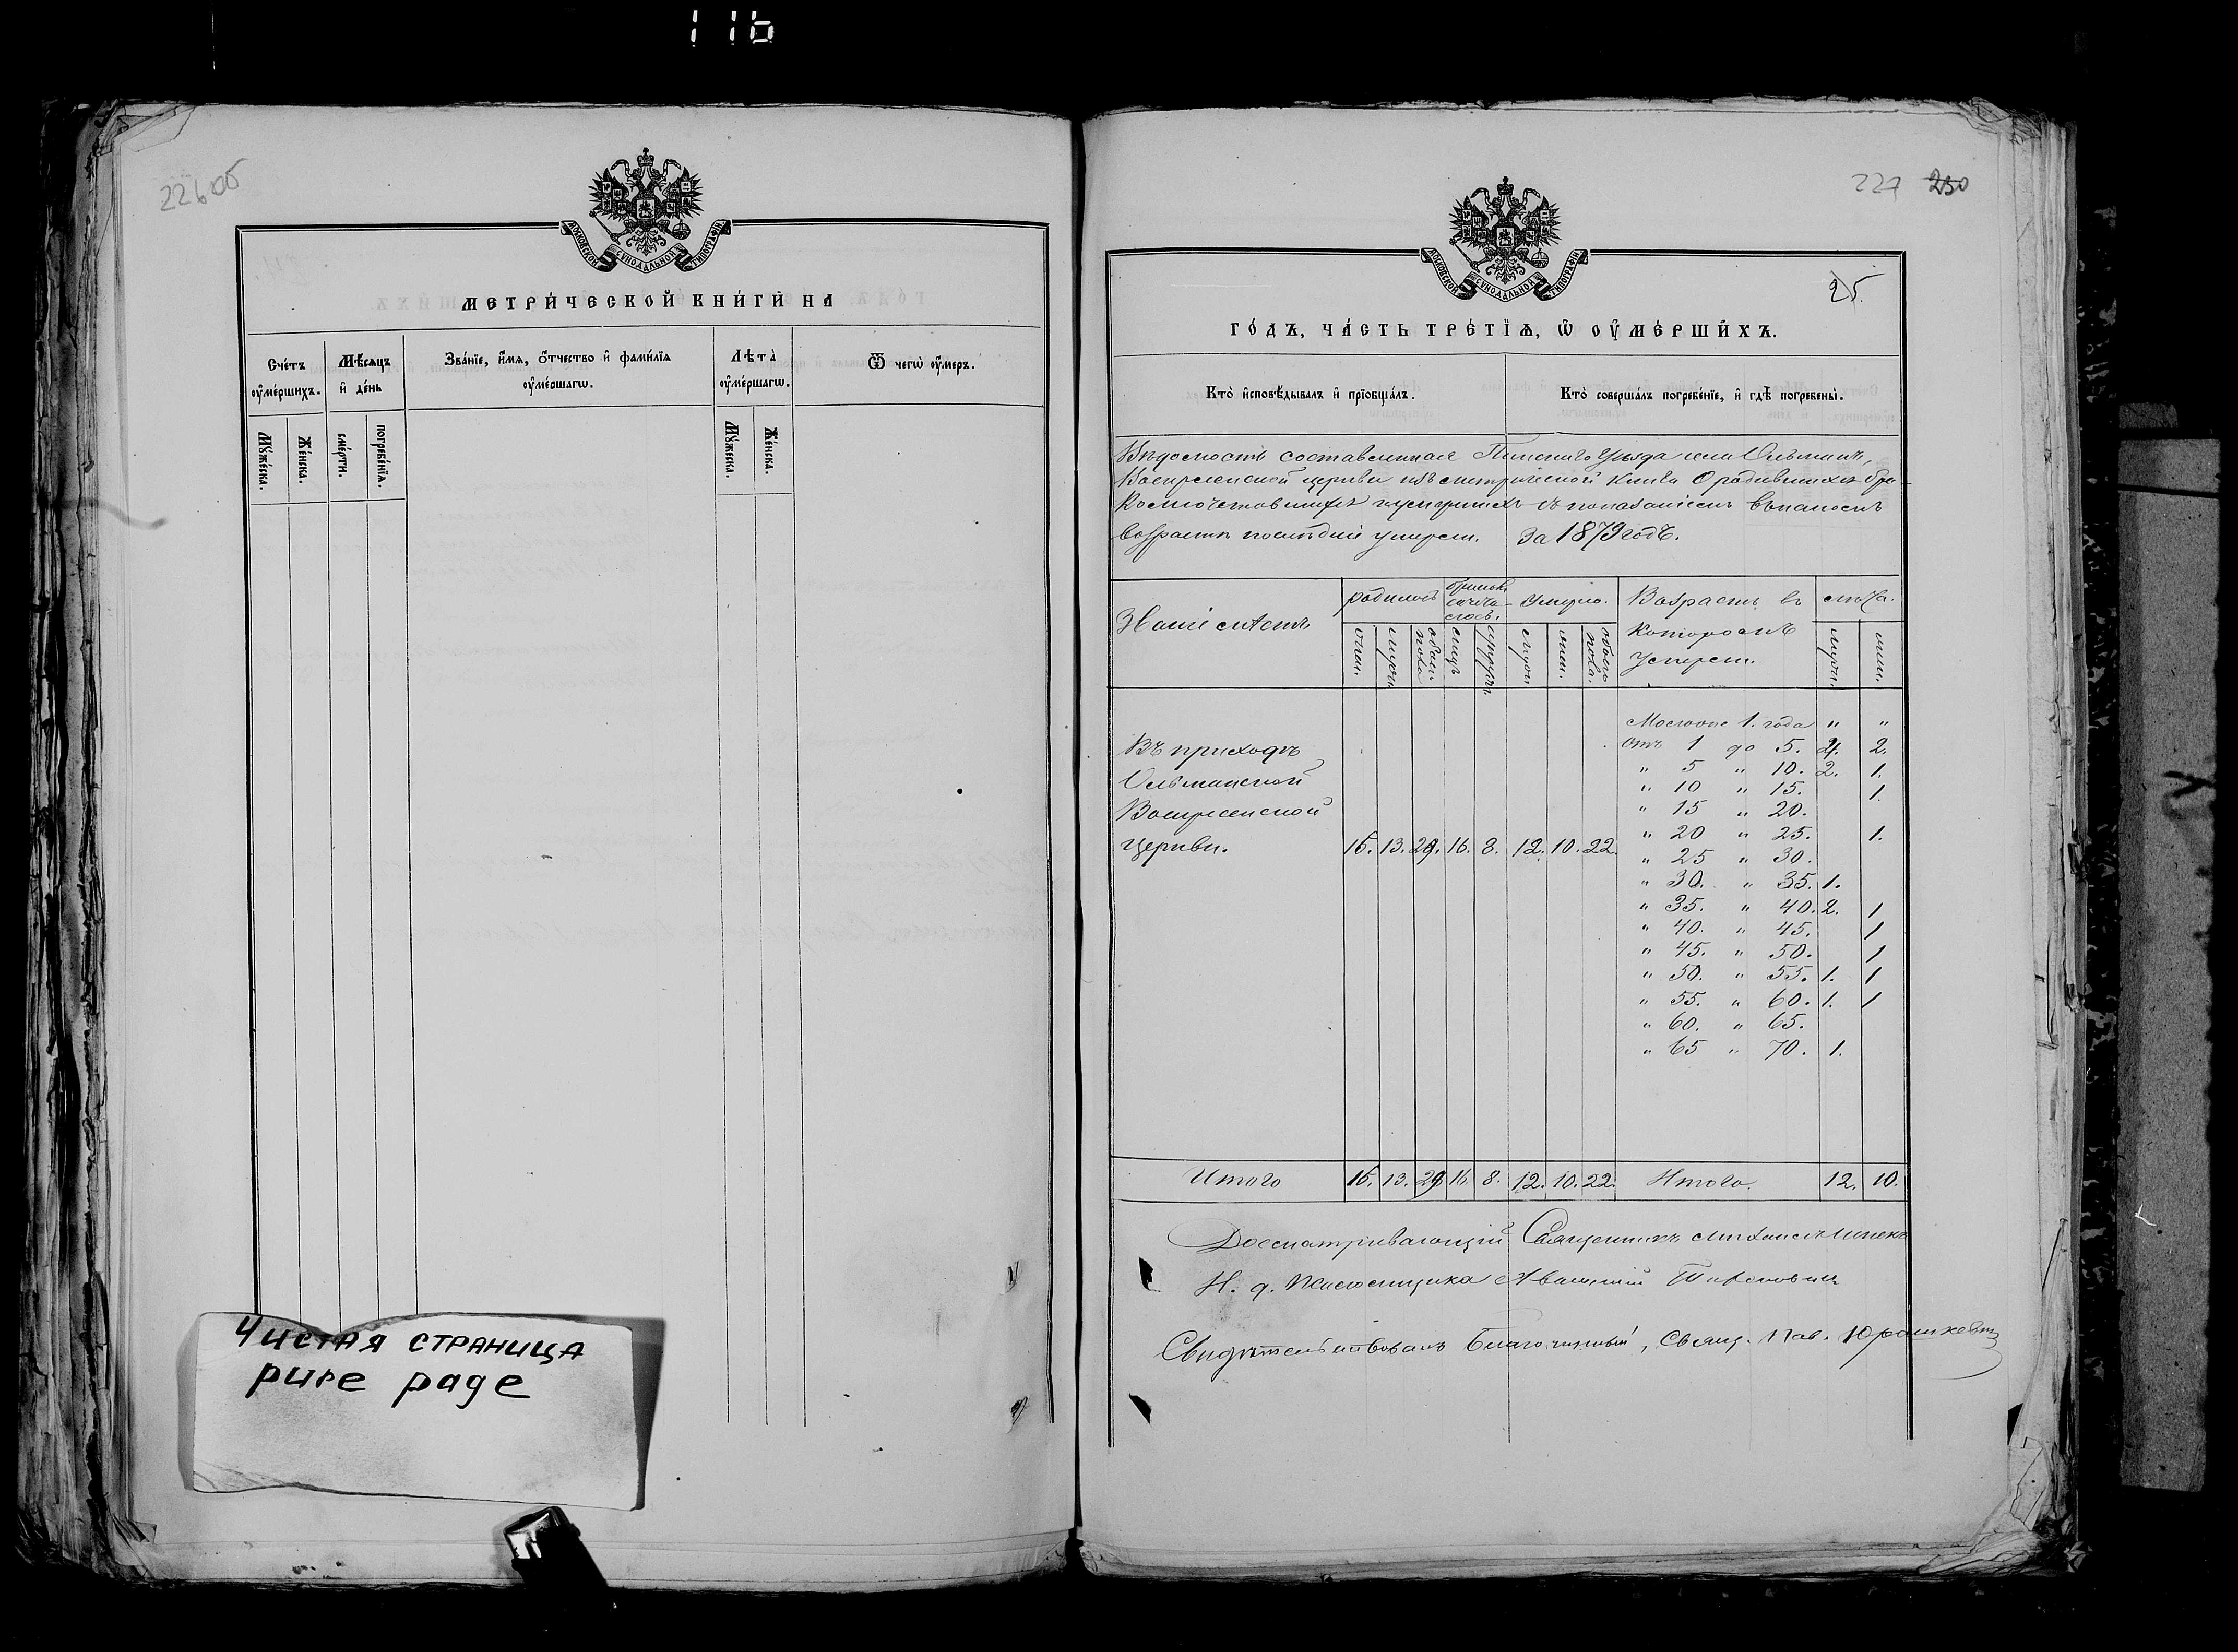 116
226об
МОСКОВСКОЙ СѴНОДАЛЬНОЙ ТИПОГРАФІИ
МЕТРИ́ЧЕСКОЙ КНИ́ГИ НА
Сче́тъ оу҆ме́ршихъ.
Мѣ́сяцъ и҆ де́нь
Зва́нїе, и҆́мя, ѻ҆́тчество и҆ фами́лїя оу҆ме́ршагѡ.
Лѣ́та оу҆ме́ршагѡ.
Ѿ чегѡ̀ оу҆́меръ.
Мꙋ́жеска.
Же́нска.
сме́рти.
погребе́нїя.
Мꙋ́жеска.
Же́нска.
Чистая страница
pure page
227 230
МОСКОВСКОЙ СѴНОДАЛЬНОЙ ТИПОГРАФІИ
25.
ГО́ДЪ, ЧА́СТЬ ТРЕ́ТЇѦ, Ѡ҆ ОУ҆МЕ́РШИХЪ.
Кто̀ и҆сповѣ́дывалъ и҆ прїобща́лъ.
Кто̀ соверша́лъ погребе́нїе, и҆ гдѣ̀ погребены̀.
Вѣдомость составленная Пинскаго Уѣзда села Ольманъ,
Воскресенской церкви изъ метрической книги О родившихся бра-
косочетавшихся и умершихъ съ показаніемъ въ какомъ
возрастѣ послѣдніе умерли. За 1879 годъ.
Званіе мѣстъ
родилось
бракомъ сочета-лось.
Умерло.
Возрастъ въ которомъ умерли.
числа.
обоего пола
лицъ
обоего пола.
Въ приходѣ
Ольманской
Воскресенской
церкви. 16. 13. 29. 16. 8. 12. 10. 22.
Моложе 1. года " "
отъ 1 до 5. 4. 2.
" 5 " 10. 2. 1.
" 10 " 15. 1.
" 15 " 20.
" 20 " 25. 1.
" 25 " 30.
" 30. " 35. 1.
" 35. " 40. 2. 1
" 40. " 45. 1
" 45. " 50. 1
" 50. " 55. 1. 1
" 55. " 60. 1. 1
" 60. " 65.
" 65 " 70. 1.
Итого 16. 13. 29 16. 8. 12. 10. 22. Итого. 12. 10.
Священникъ Михаилъ
И. д. Псаломщика
Свидѣтельствовалъ Благочинный, Свящ. Пав. Юрашкевичъ